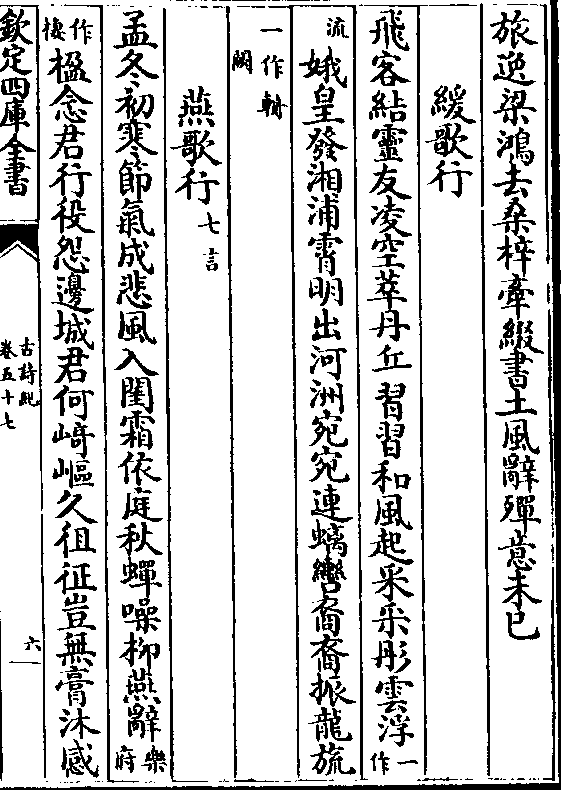 旅逸梁鴻去桑梓牽綴書土風辭殫意未已
緩歌行
飛客結靈友凌空萃丹丘習習和風起采采彤雲浮一作
流娥皇發湘浦霄明出河洲宛宛連螭轡裔裔振龍旒
一作輈闕
燕歌行七言
孟冬初寒節氣成悲風入閨霜依庭秋蟬噪柳燕辭樂府
作棲楹念君行役怨邊城君何崎嶇久徂征豈無膏沐感
欽定四庫全書
古詩紀
卷五十七
六